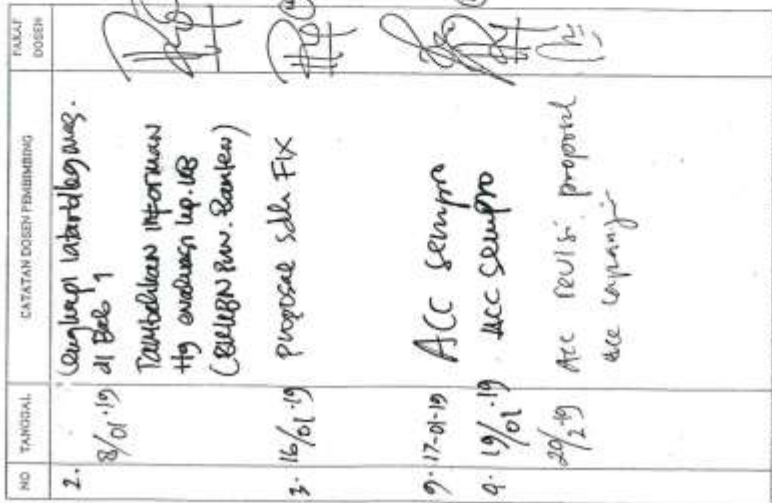 NO TANGGAL CATATAN DOSEN PEMBIMBING PARAF DOSEN
2. 8/01.19 Lengkapi latarblkg
di Bab 1
Tambahkan informan
ttg evaluasi
(BKKBN Prov. Banten)
3. 16/01.19 proposal sdh FIX
9. 17-01-19 ACC sempro
4. 19/01.19 ACC sempro
20/2-19 Acc revisi proposal